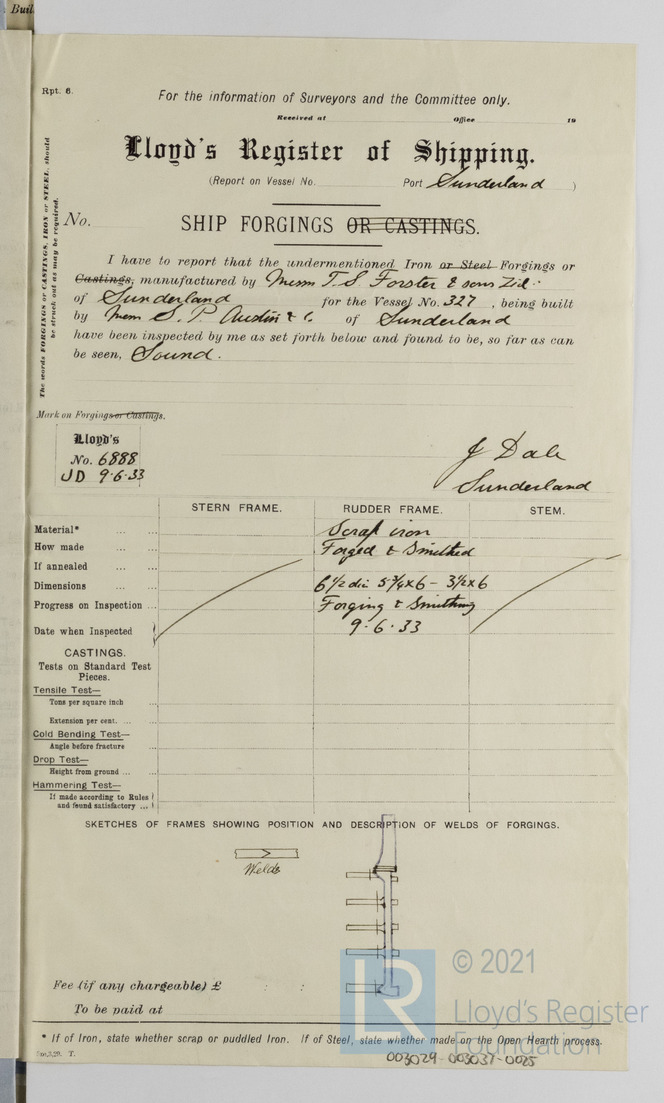 Buil
Rpt. 6.
For the information of Surveyors and the Committee only.
Received at Office 19
Lloyd's Register of Shipping.
(Report on Vessel No. Port Sunderland )
The words FORGINGS or CASTINGS, IRON or STEEL, should
be struck out as may be required.
No.
SHIP FORGINGS OR CASTINGS.
I have to report that the undermentioned Iron or Steel Forgings or
Castings, manufactured by Messrs T. S Forster & sons Ltd
of Sunderland for the Vessel No. 327, being built
by Messrs S. P. Austin & Co of Sunderland
have been inspected by me as set forth below and found to be, so far as can
be seen, Sound.
Mark on Forgings or Castings.
Lloyd's
No. 6888
JD 9.6.33
J Dale
Sunderland
STERN FRAME. RUDDER FRAME. STEM.
Material* ... ... Scrap iron
How made ... ... Forged & Smithed
If annealed ... ...
Dimensions ... ... 6½ dia 5¾x6 - 3½x6
Progress on Inspection ... Forging & Smithing
Date when Inspected 9.6.33
CASTINGS.
Tests on Standard Test
Pieces.
Tensile Test—
Tons per square inch ...
Extension per cent. ... ...
Cold Bending Test—
Angle before fracture ...
Drop Test—
Height from ground ... ...
Hammering Test—
If made according to Rules
and found satisfactory ...
SKETCHES OF FRAMES SHOWING POSITION AND DESCRIPTION OF WELDS OF FORGINGS.
Welds
Fee (if any chargeable) £ : :
To be paid at
* If of Iron, state whether scrap or puddled Iron. If of Steel, state whether made on the Open Hearth process.
003029-003037-0025
LR
© 2021
Lloyd's Register
Foundation